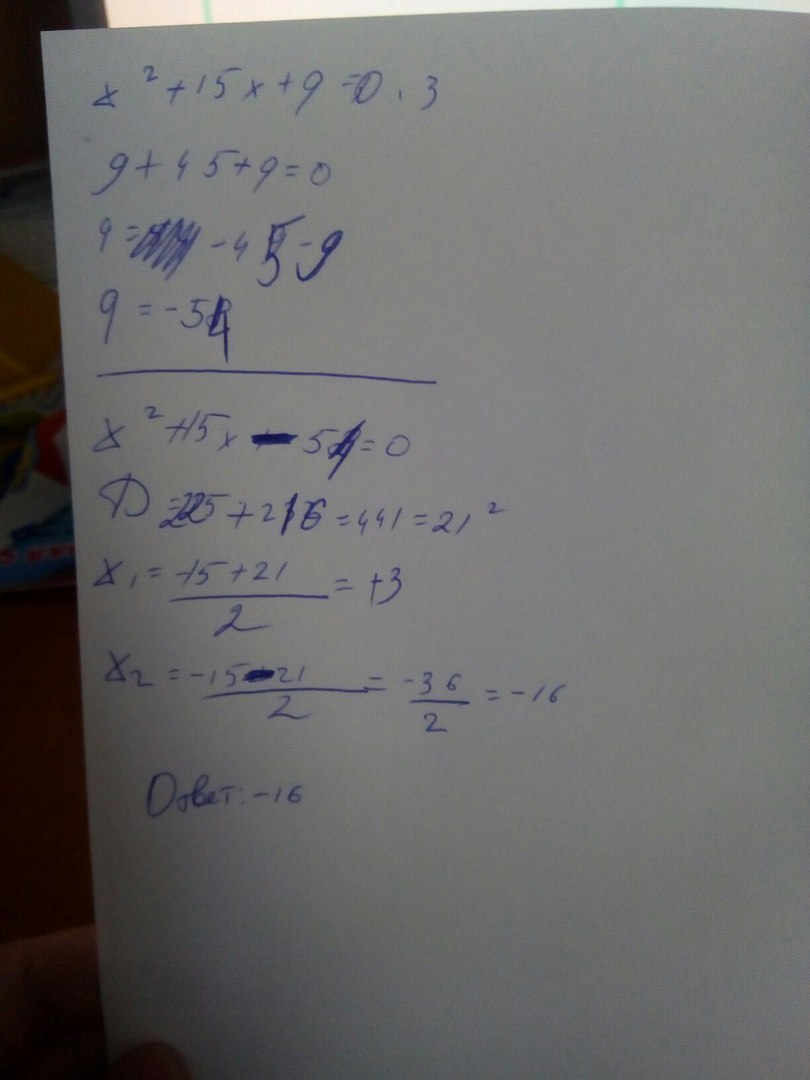 x² + 15x + q = 0 . 3
9 + 45 + q = 0
q = -45-9
q = -54
x² + 15x - 54 = 0
D = 225 + 216 = 441 = 21²
x₁ = -15 + 21 / 2 = +3
x₂ = -15 - 21 / 2 = -36 / 2 = -16
Ответ: -16